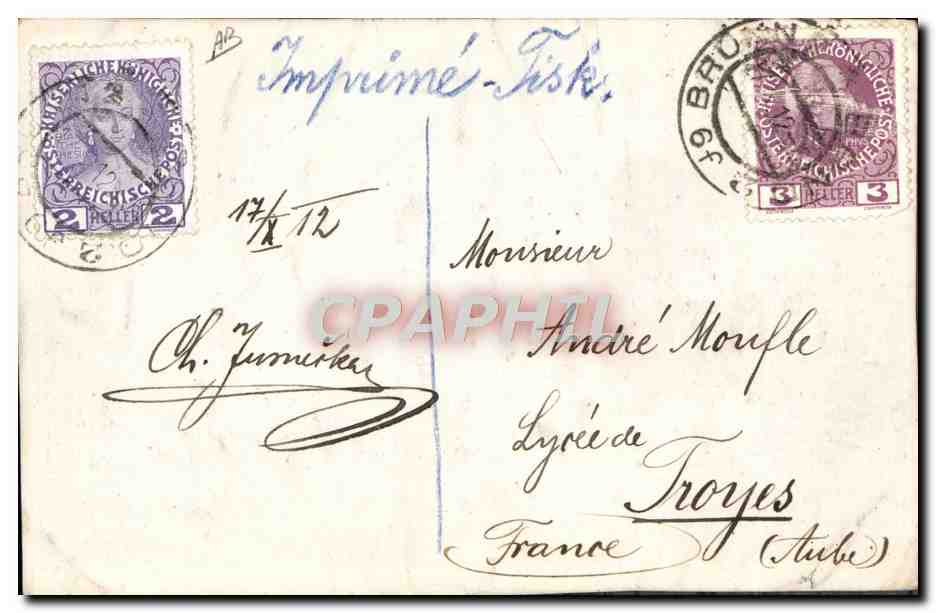 AB
Imprimé-Tisk.
KAISERLICHEKÖNIGLICHE
ÖSTERREICHISCHE POST
2 HELLER 2
BRÜNN
KAISERLICHEKÖNIGLICHE
ÖSTERREICHISCHE POST
3 HELLER 3
17/X 12
Monsieur
CPAPHIL
Ch.
André Moufle
Lycée de
Troyes
France (Aube)